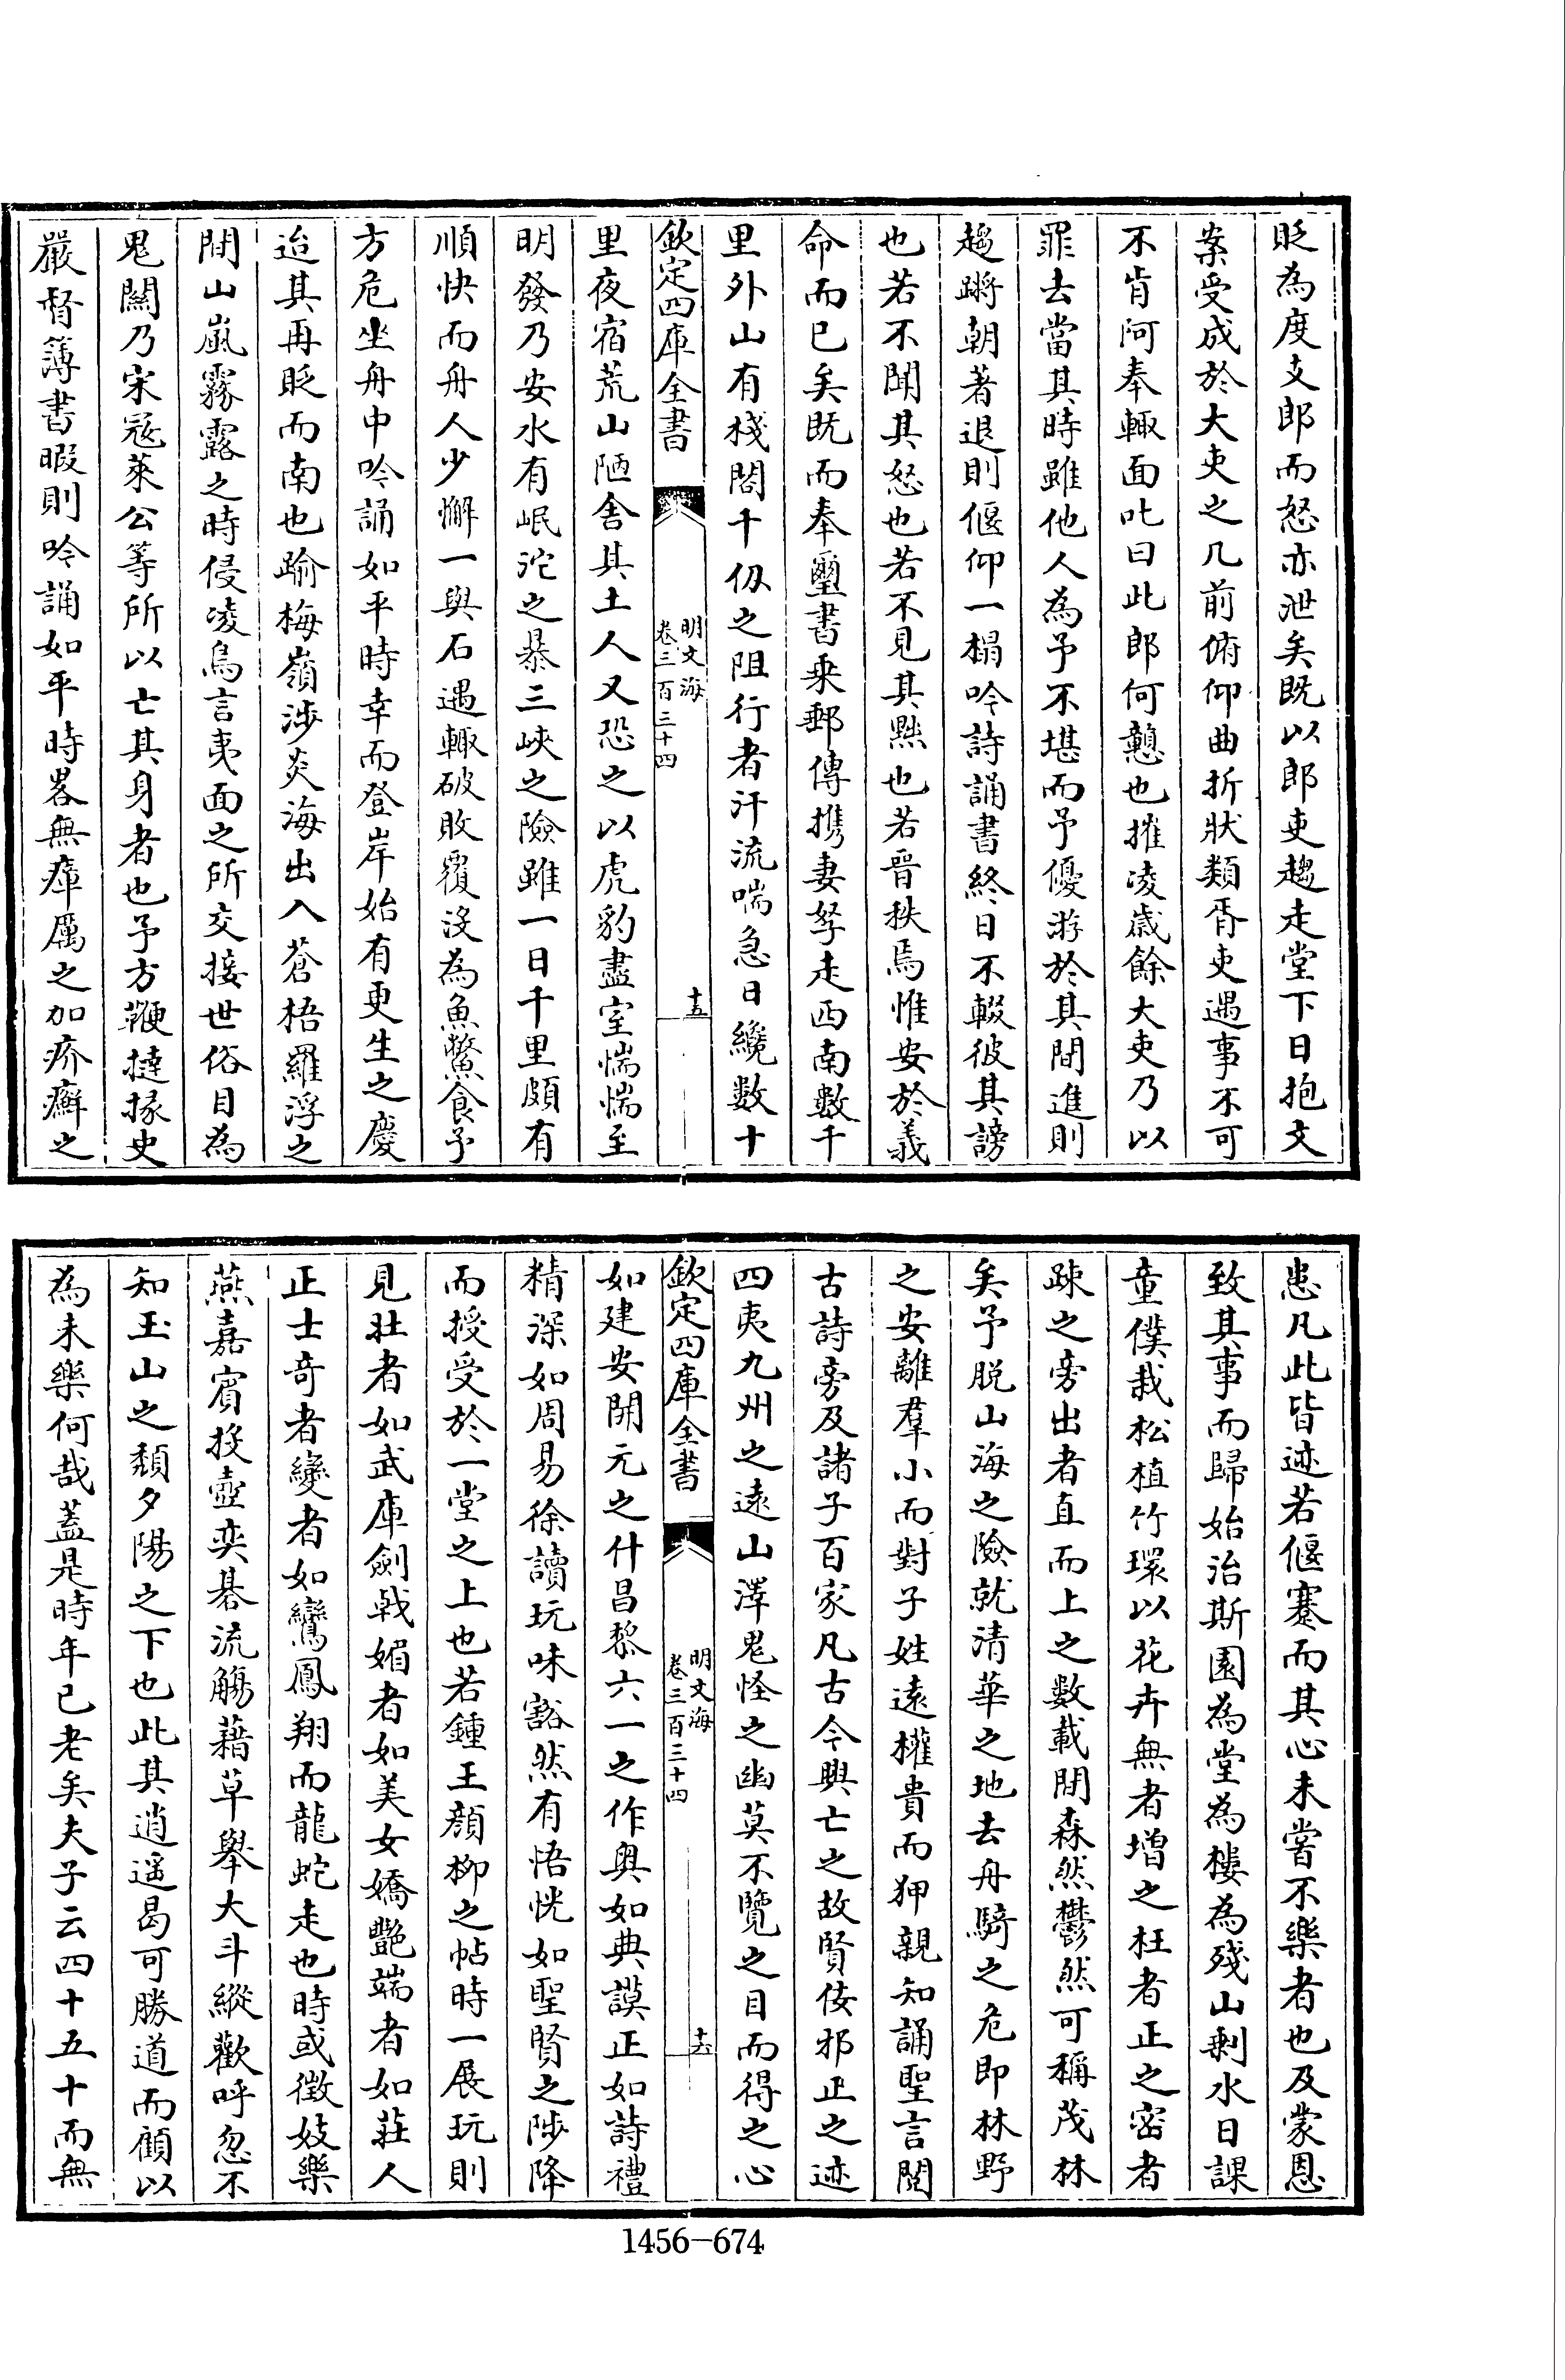 貶為度支郎而怒亦泄矣既以郎吏趨走堂下日抱文
案受成於大吏之几前俯仰曲折狀類胥吏遇事不可
不肯阿奉輙面叱曰此郎何戇也摧凌嵗餘大吏乃以
罪去當其時雖他人為予不堪而予優游於其間進則
趨蹡朝著退則偃仰一榻吟詩誦書終日不輟彼其謗
也若不聞其怒也若不見其黜也若晉秩焉惟安於義
命而已矣既而奉璽書乘郵傳携妻孥走西南數千
里外山有棧閣千仭之阻行者汗流喘急日纔數十
欽定四庫全書
明文海
卷三百三十四
十五
里夜宿荒山陋舍其土人又恐之以虎豹盡室惴惴至
明發乃安水有岷沱之暴三峽之險雖一日千里頗有
順快而舟人少懈一與石遇輙破敗覆没為魚鱉食予
方危坐舟中吟誦如平時幸而登岸始有更生之慶
迨其再貶而南也踰梅嶺涉炎海出入蒼梧羅浮之
間山嵐霧露之時侵凌鳥言夷面之所交接世俗目為
鬼關乃宋寇萊公等所以亡其身者也予方鞭撻掾史
嚴督簿書暇則吟誦如平時畧無瘴厲之加疥癬之
患凡此皆迹若偃蹇而其心未嘗不樂者也及蒙恩
致其事而歸始治斯園為堂為樓為殘山剩水日課
童僕栽松植竹環以花卉無者增之枉者正之密者
踈之旁出者直而上之數載間森然鬱然可稱茂林
矣予脱山海之險就清華之地去舟騎之危即林野
之安離羣小而對子姓遠權貴而狎親知誦聖言閲
古詩旁及諸子百家凡古今興亡之故賢佞邪正之迹
四夷九州之遠山澤鬼怪之幽莫不覽之目而得之心
欽定四庫全書
明文海
卷三百三十四
十六
如建安開元之什昌黎六一之作奥如典謨正如詩禮
精深如周易徐讀玩味豁然有悟恍如聖賢之陟降
而授受於一堂之上也若鍾王顔柳之帖時一展玩則
見壯者如武庫劍戟媚者如美女嬌艷端者如莊人
正士奇者變者如鸞鳳翔而龍蛇走也時或徵妓樂
燕嘉賓投壺奕碁流觴藉草舉大斗縱歡呼忽不
知玉山之頽夕陽之下也此其逍遥曷可勝道而顧以
為未樂何哉蓋是時年已老矣夫子云四十五十而無
1456—674